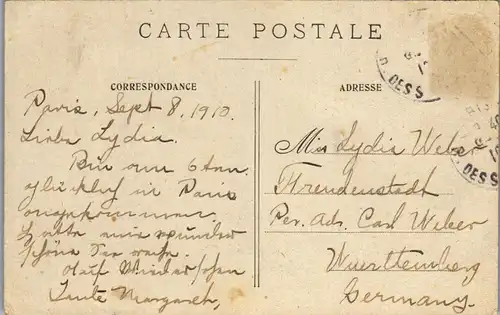 CARTE POSTALE
CORRESPONDANCE
ADRESSE
Paris, Sept 8, 1910.
Liebe Lydia.
Bin am 6ten
glücklich in Paris
angekommen
Hatte eine wunder
schöne See
Auf Wiedersehen
Tante Margareth,
Miss Lydia Weber
Freudenstadt
Per. Adr. Carl Weber
Wuerttemberg
Germany.